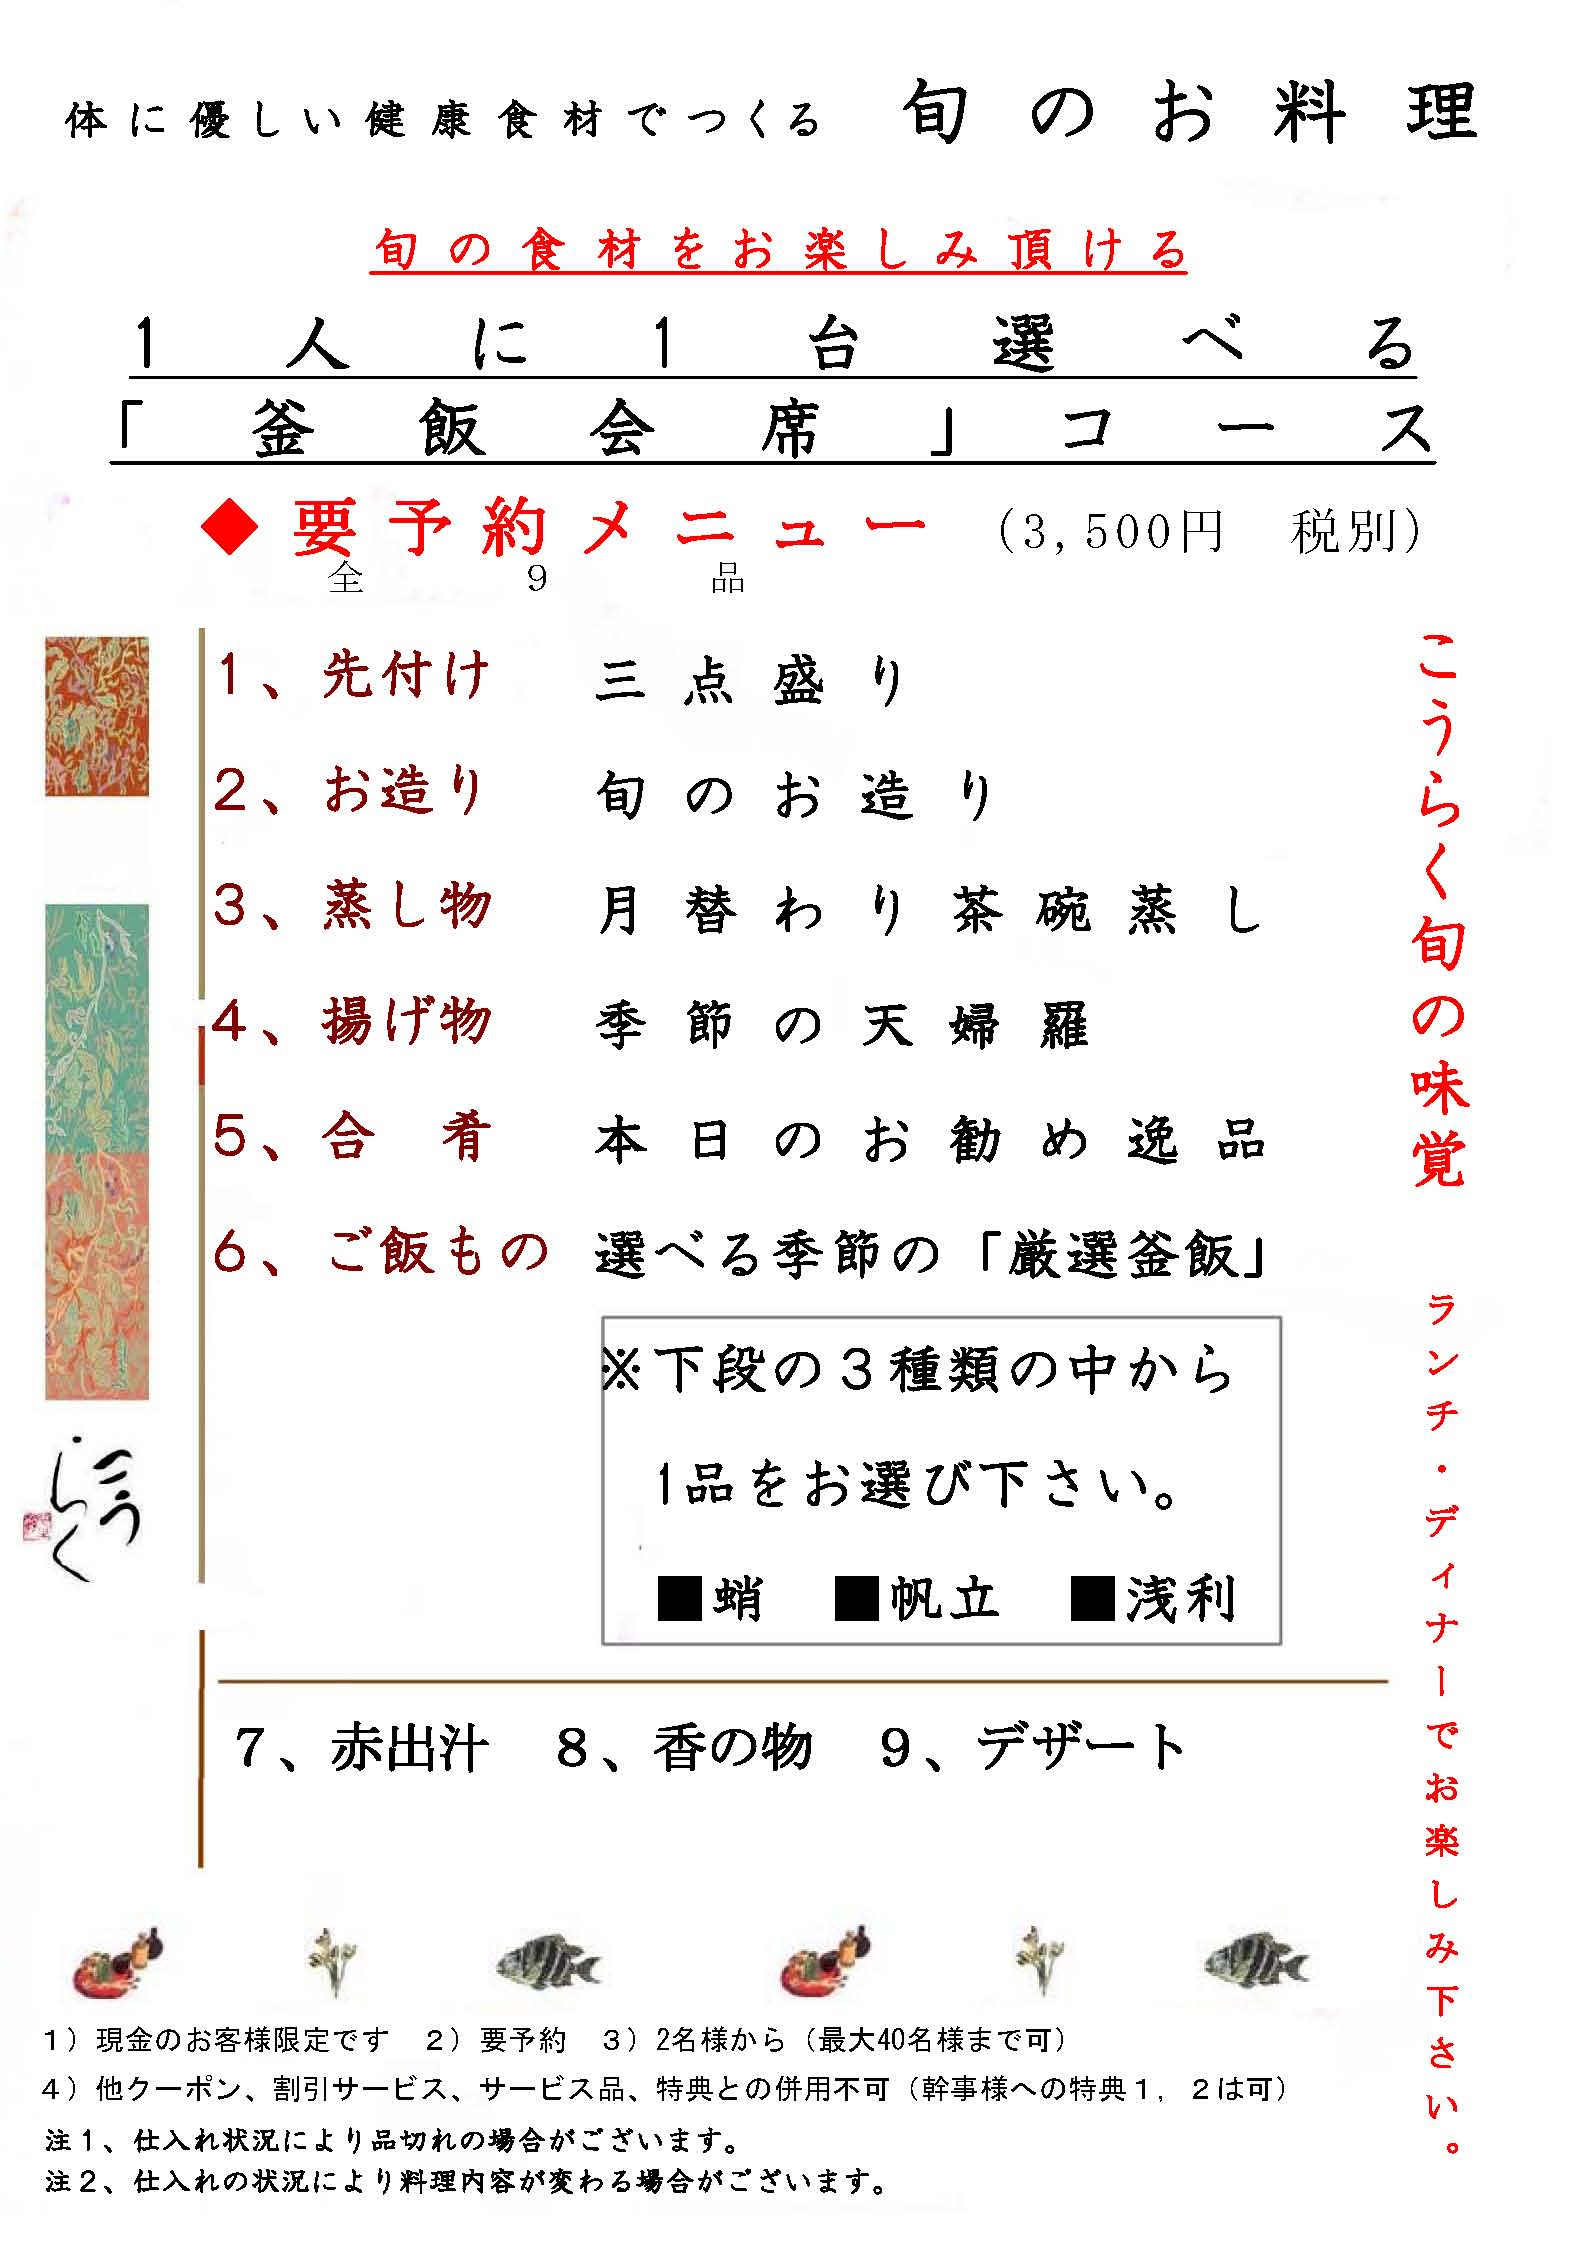 体に優しい健康食材でつくる 旬のお料理
旬の食材をお楽しみ頂ける
1人に1台選べる
「釜飯会席」コース
◆要予約メニュー (3,500円 税別)
全9品
1、先付け 三点盛り
2、お造り 旬のお造り
3、蒸し物 月替わり茶碗蒸し
4、揚げ物 季節の天婦羅
5、合 肴 本日のお勧め逸品
6、ご飯もの 選べる季節の「厳選釜飯」
※下段の3種類の中から
1品をお選び下さい。
■蛸 ■帆立 ■浅利
7、赤出汁 8、香の物 9、デザート
こうらく旬の味覚
ランチ・ディナーでお楽しみ下さい。
こう
らく
1）現金のお客様限定です 2）要予約 3）2名様から（最大40名様まで可）
4）他クーポン、割引サービス、サービス品、特典との併用不可（幹事様への特典1, 2は可）
注1、仕入れ状況により品切れの場合がございます。
注2、仕入れの状況により料理内容が変わる場合がございます。